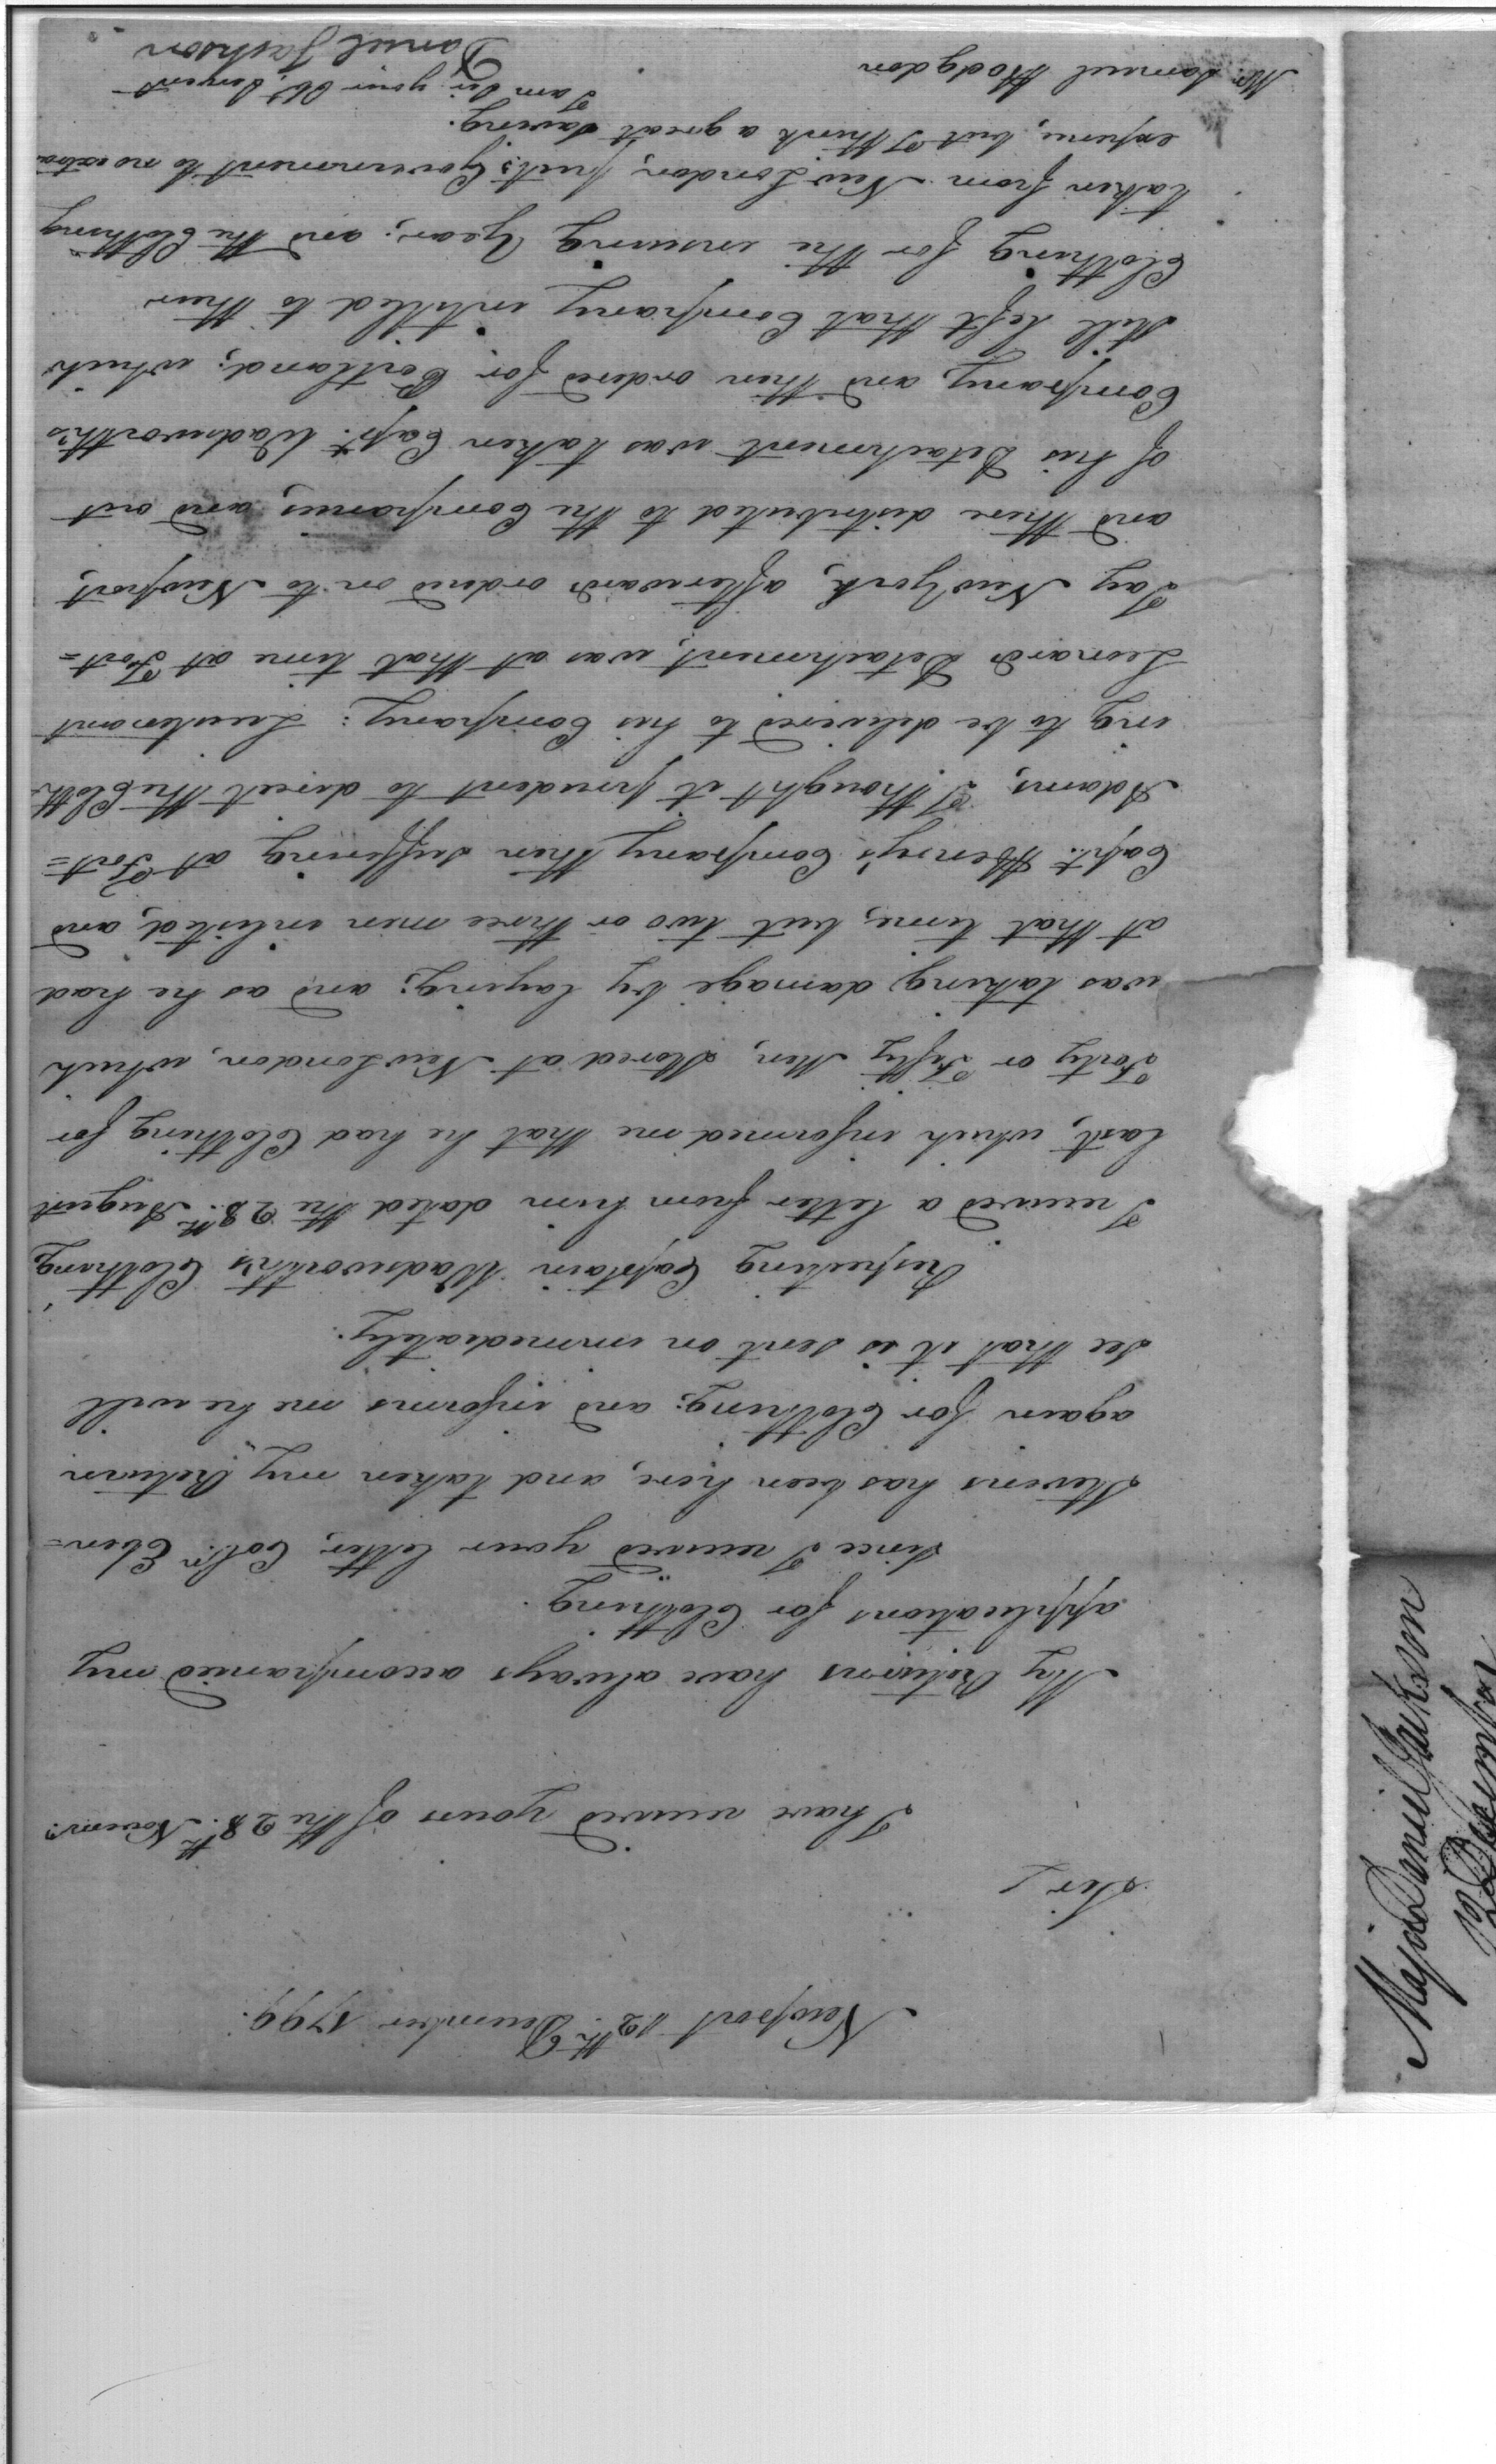 Newport 12th. December 1799.
Sir
I have received yours of the 28th. Novemr.
My Returns have always accompanied my
applications for Clothing.
Since I received your letter, Coln. Eben=
Stevens has been here, and taken my Return
again for Clothing; and informs me he will
see that it is sent on immediately.
Respecting Captain Wadsworth's Clothing,
I received a letter from him dated the 28th. August
last, which informed me that he had Clothing for
Forty or Fifty Men, stored at New London, which
was taking damage by laying; and as he had
at that time, but two or three men inlisted, and
Capt. Henry's Company then suffering at Fort=
Adams, I thought it prudent to direct the Cloth-
ing to be delivered to his Company: Lieutenant
Leonard's Detachment, was at that time at Fort=
Jay New York, afterwards ordered on to Newport,
and there distributed to the Companies, and out
of his Detachment was taken Capt. Wadsworth's
Company, and then ordered for Portland; which
still left that Company intitled to their
Clothing for the insuing Year; and the Clothing
taken from New London, puts Government to no extra
expense, but I think a great saving.
I am Sir your Obt. Servant
Daniel Jackson
Mr. Samuel Hodgdon
Major Daniel Jackson
12 December